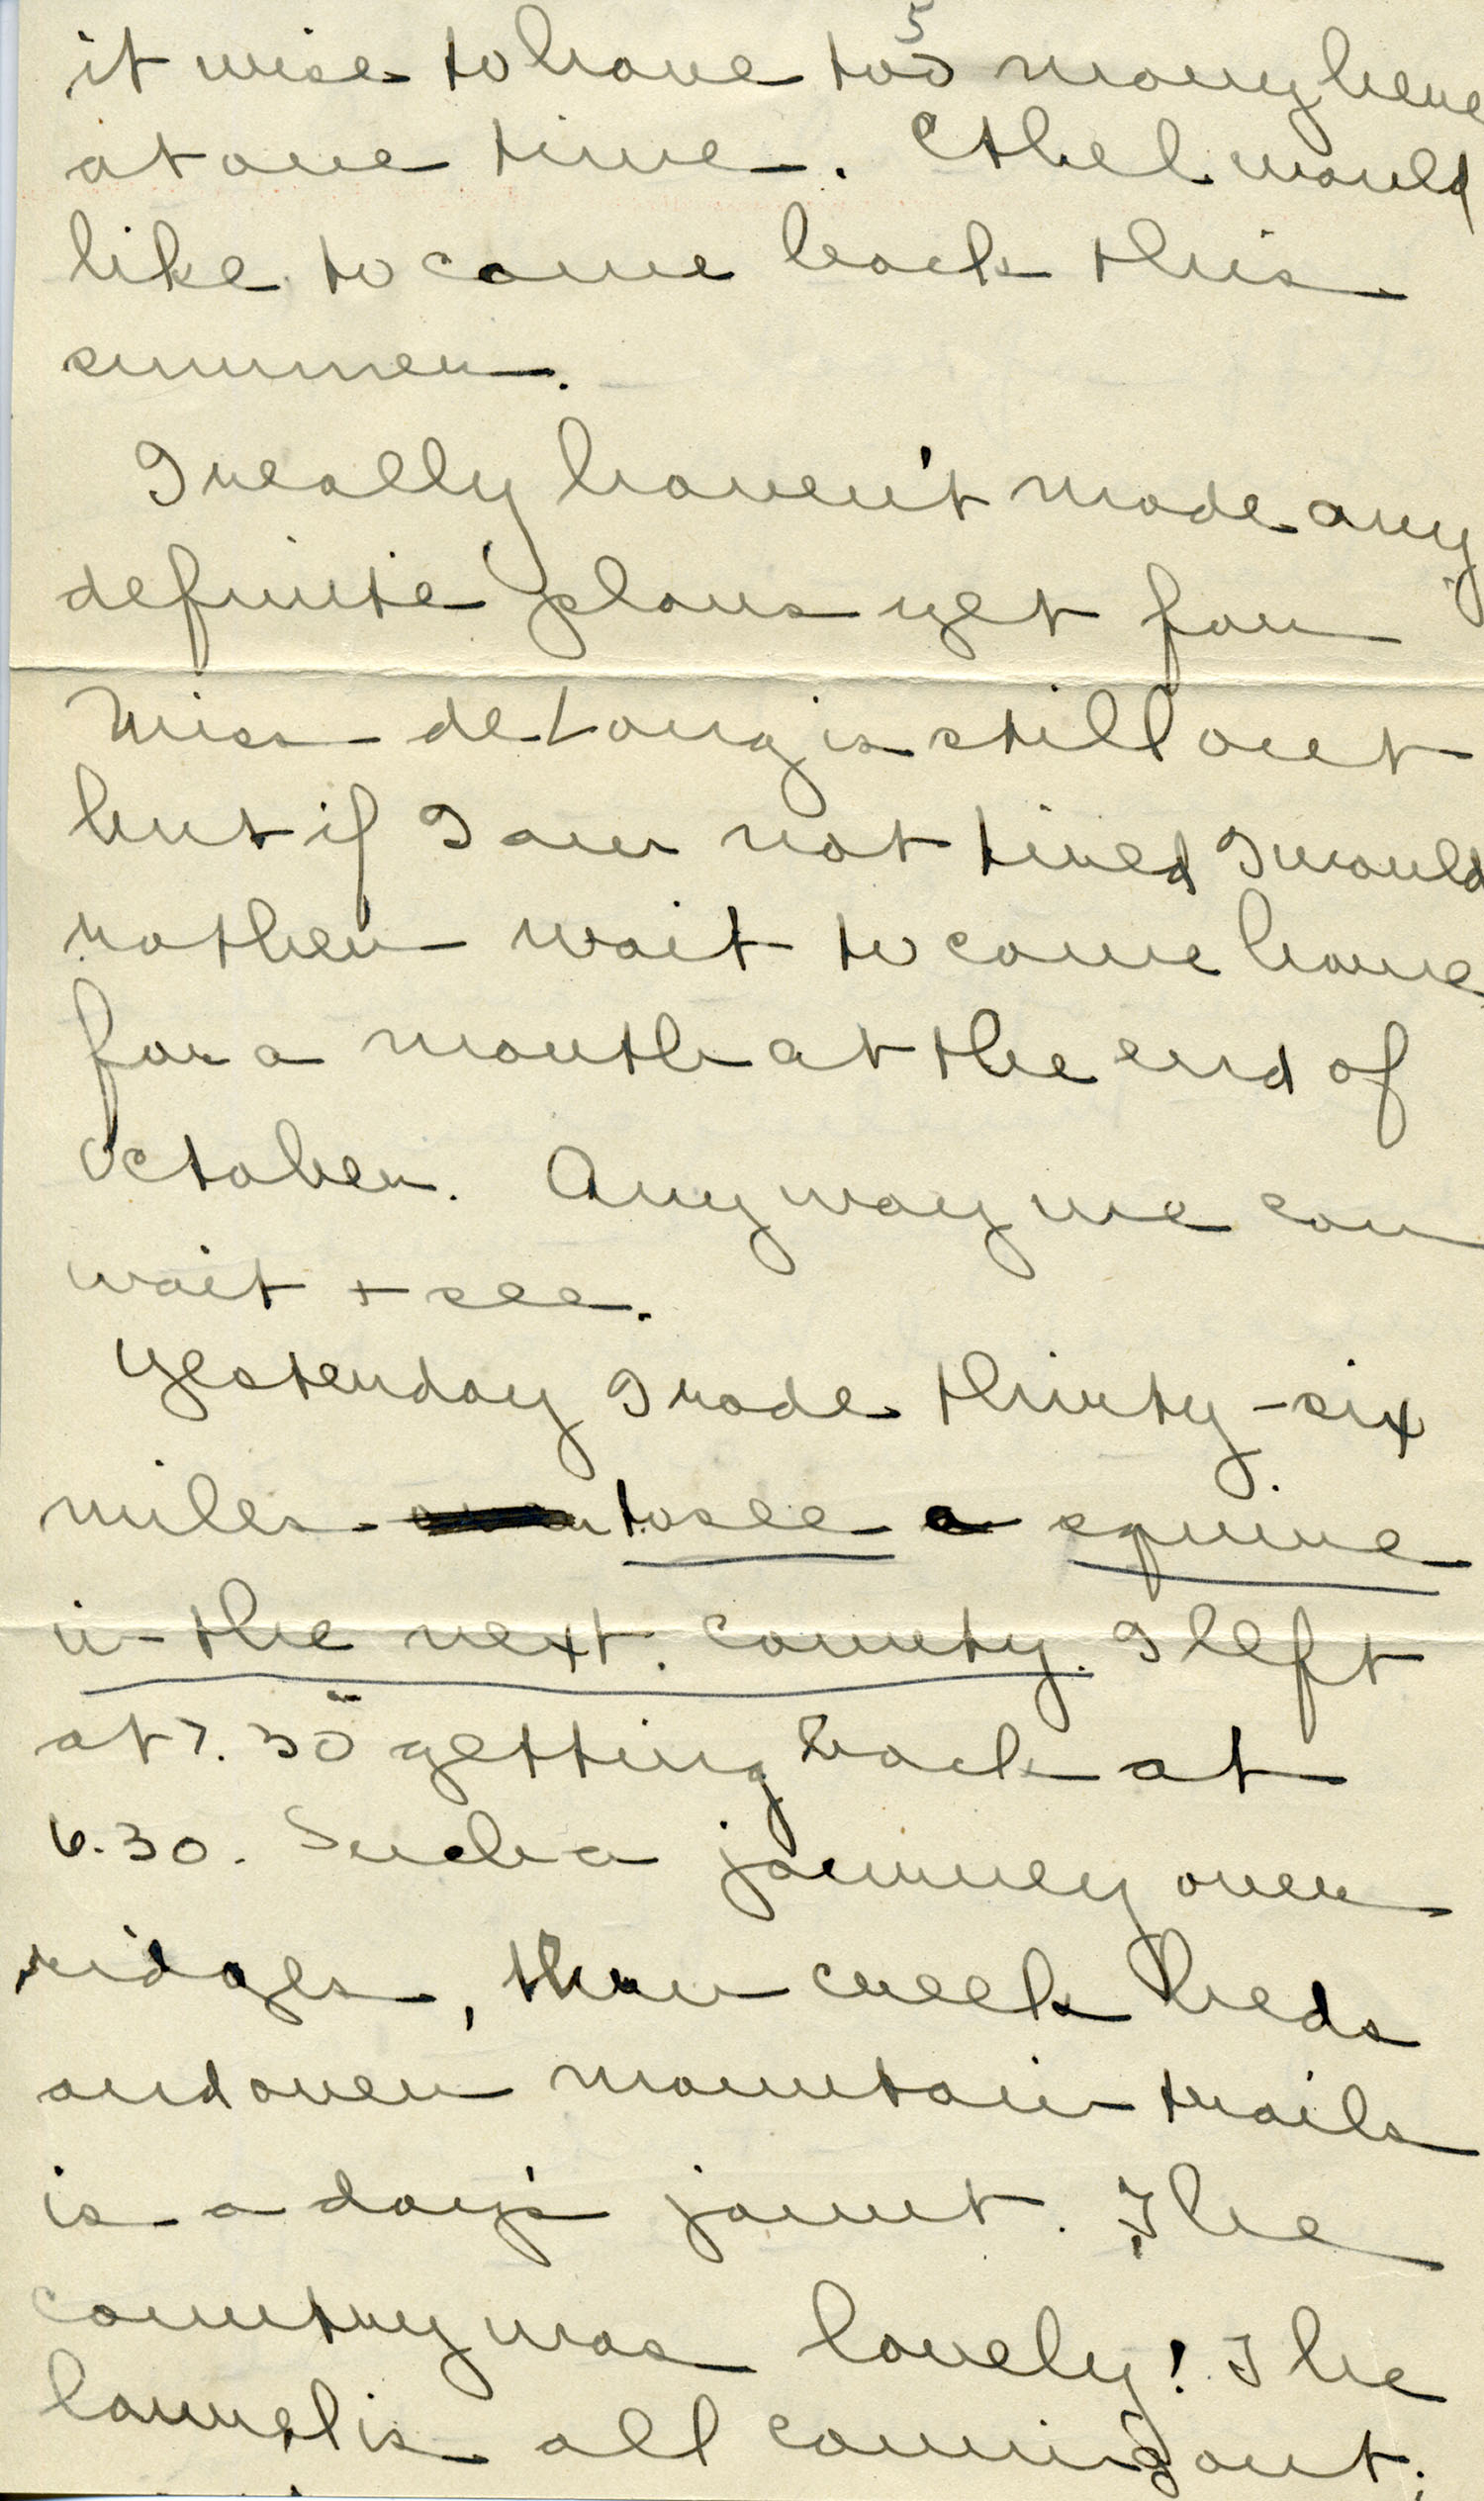 5
it wise to have too many here
at one time. Ethel would
like to come back this
summer.
I really haven't made any
definite plans yet for
Miss de Long is still out
but if I am not tired I would
rather wait to come home
for a month at the end of
October. Anyway we can
wait + see.
Yesterday I rode thirty-six
miles to see a squire
in the next county. I left
at 7.30 getting back at
6.30. Such a journey over
ridges, thru creek beds
and over mountain trails
is a day's jaunt. The
country was lovely! The
laurel is all coming out;